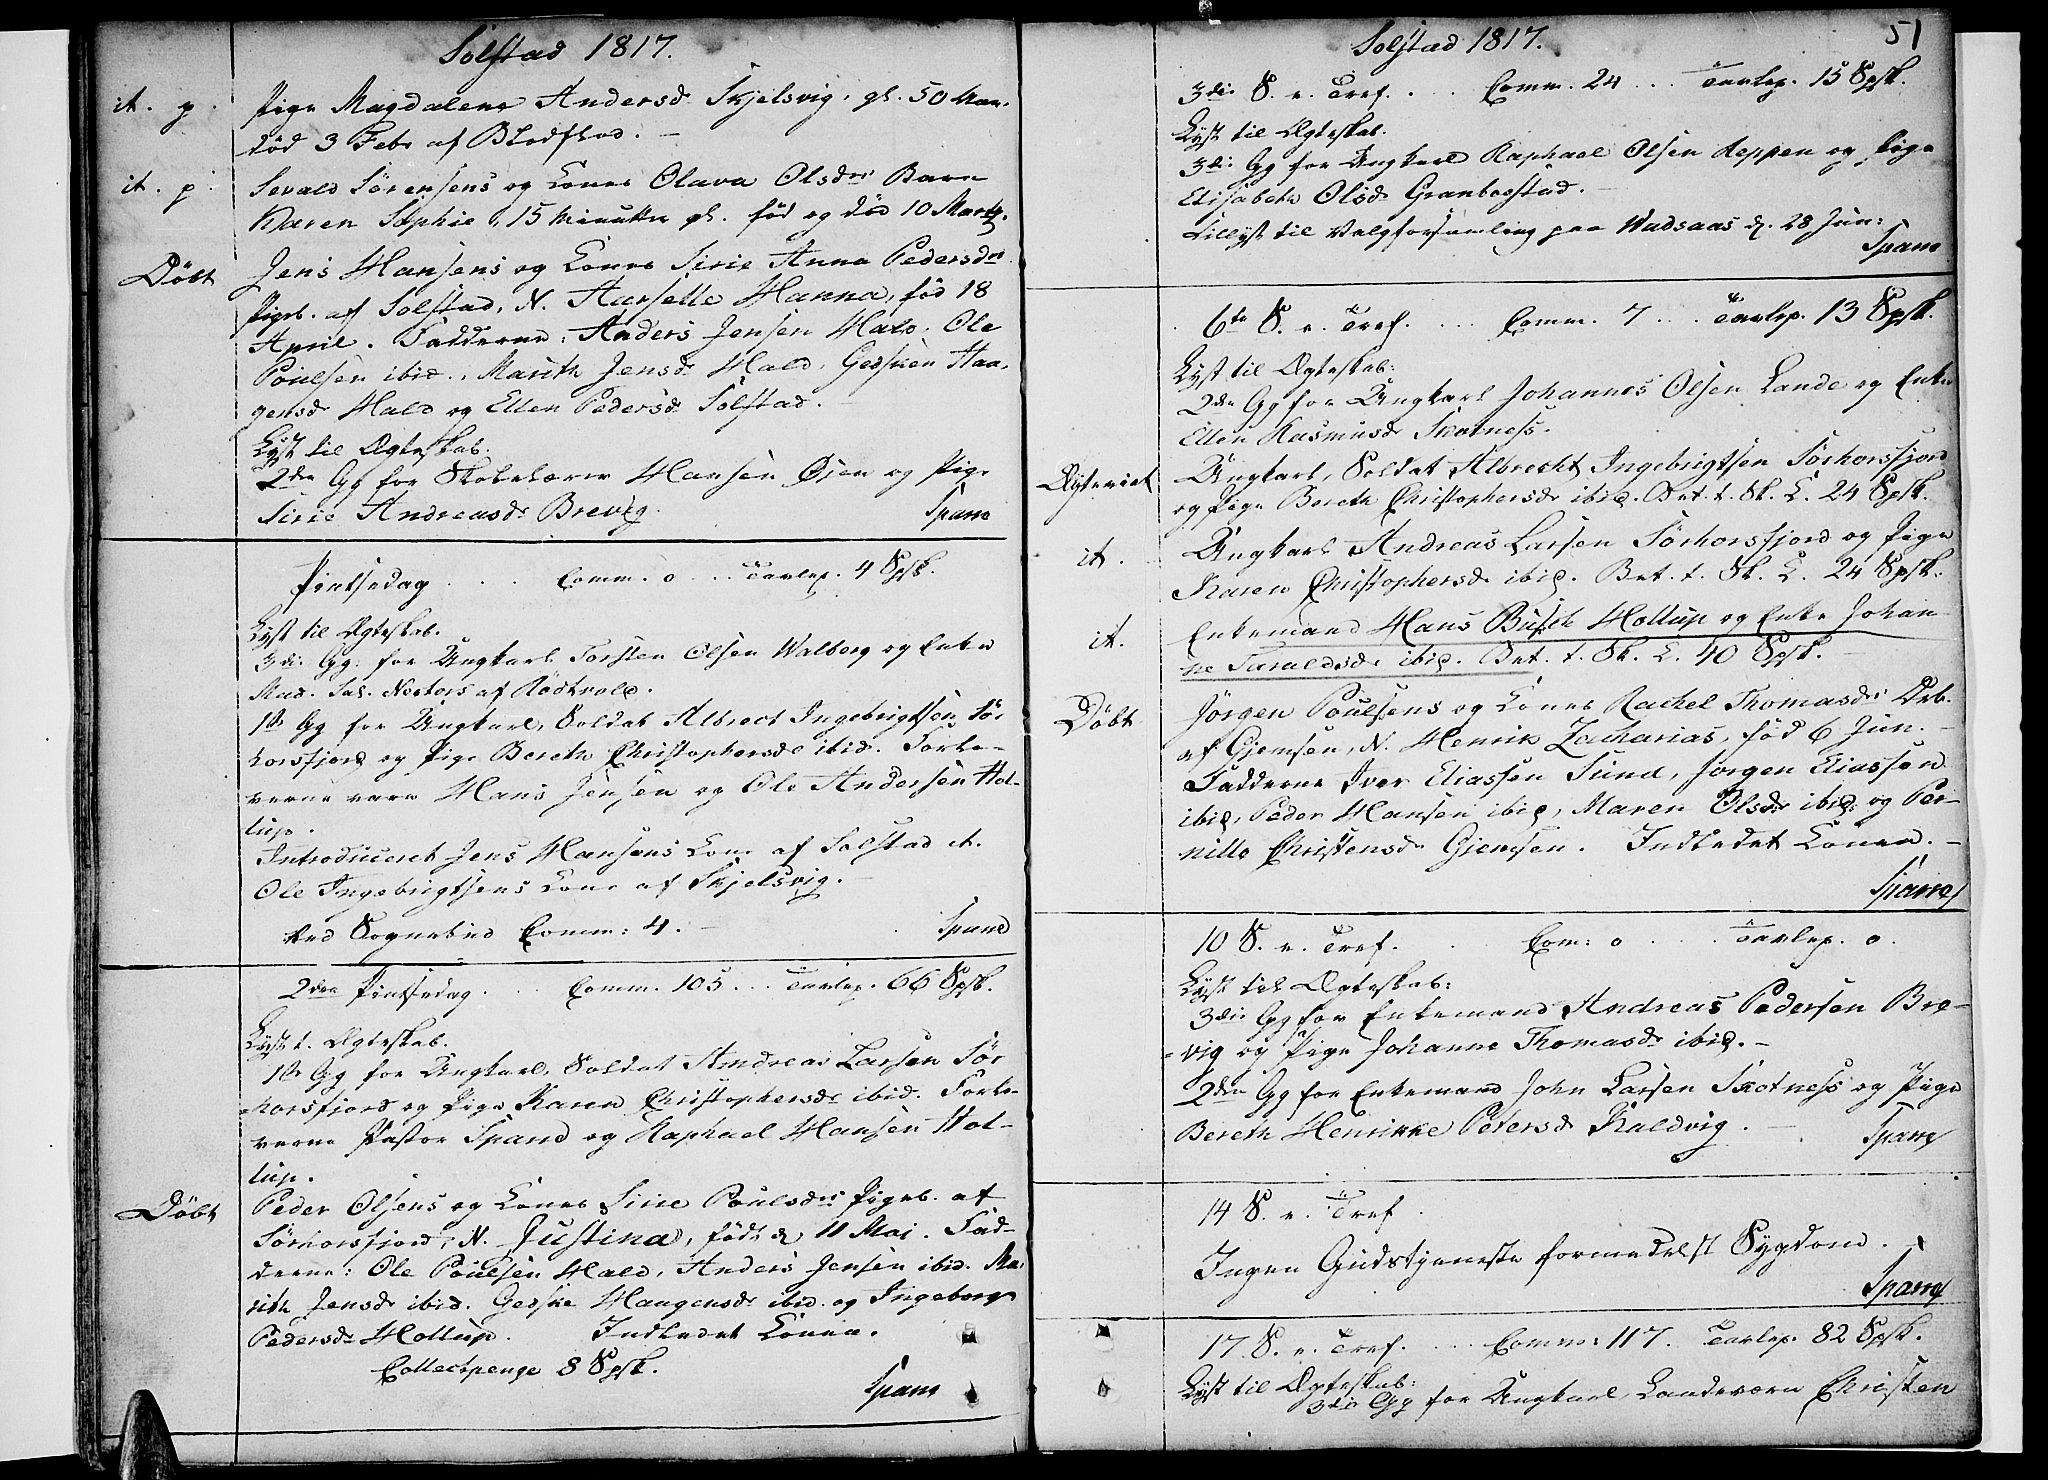 Solstad 1817.
it. p. Pige Magdalena Andersd. Skjelsvig, gl. 50 Aar,
död 3 Febr af Blodflod. –
it. p. Sevald Sörensens og Kones Olava Olsdrs Barn
Karen Sophie, 15 Minutter gl. föd og död 10 Marts.
Döbt Jens Hansens og Kones Sirie Anna Pedersdrs
Pigeb. af Solstad, N. Hanna, föd 18
April. Fadderne: Anders Jensen Hald, Ole
Poulsen ibid., Marith Jensd. Hald, Gesken Haa-
gensd. Hald og Ellen Pedersd. Solstad.
Lyst til Ægteskab.
2den Gg for Skolelærer Hansen Öien og Pige
Sirie Andreasdr Brevig. Spam
Pintsedag . . . Comm. 0 . . . Tavlep. 4 Spsk.
Lyst til Ægteskab.
3die Gg. for Ungkarl Torsten Olsen Walberg og Enke
Mad. Sal. af Rödtvold.
1ste Gg for Ungkarl, Soldat Albrect Ingebrigtsen Sör-
horsfjord og Pige Bereth Christophersdr ibid. Forlo-
verne vare Hans Jensen og Ole Andersen Hol-
lup.
Introduceret Jens Hansens Kone af Solstad it.
Ole Ingebrigtsens Kone af Skjelsvig. –
Ved Sognebud Comm: 4. – Spam
2den Pintsedag . . . Comm. 105 . . . Tavlep. 66 Spsk.
Lyst t. Ægteskab.
1ste Gg for Ungkarl, Soldat Andreas Larsen Sör-
horsfjord og Pige Karen Christophersdr ibid. Forlo-
verne Pastor Spam og Raphael Hansen Hol-
lup.
Döbt Peder Olsens og Kones Sirie Poulsdrs Pigeb. af
Sörhorsfjord, N. Justina, födt d. 11 Mai. Fad-
derne: Ole Poulsen Hald, Anders Jensen ibid. Ma-
rith Jensdr ibid. Geske Haagensdr ibid. og Ingeborg
Pedersdr Hollup. Indledet Konen.
Collectpenge 8 Spsk.
Spam
Solstad 1817. 51
3die S. e. Tref. . . . Comm. 24 . . . Tavlep. 15 Spsk.
Lyst til Ægteskab.
3die Gg for Ungkarl Raphael Olsen Reppen og Pige
Elisabeth Olsdr Granbostad. –
Tillyst til Valgforsamling paa Wadsaas d. 28 Jun:
Spam
6te S. e. Tref. . . . Comm. 7 . . . Tavlep. 13 Spsk.
Lyst til Ægteskab:
2den Gg for Ungkarl Johannes Olsen Lande og Enke
Ellen Rasmusdr Skotness.
Ægteviet Ungkarl, Soldat Albrecht Ingebrigtsen Sörhorsfjord
og Pige Bereth Christophersdr ibid. Bet. t. Sk. K. 24 Spsk.
it. Ungkarl Andreas Larsen Sörhorsfjord og Pige
Karen Christophersdr ibid. Bet. t. Sk. K. 24 Spsk.
it. Enkemand Hans Busch Hollup og Enke Johan-
ne Taraldsdr ibid. Bet. t. Sk. K. 40 Spsk.
Döbt Jörgen Poulsens og Kones Rachel Thomasdrs Drb.
af Gjemsen, N. Henrik Zacharias, föd 6 Jun. –
Fadderne Iver Eliassen Sund, Jörgen Eliassen
ibid, Peder Hansen ibid, Maren Olsdr ibid: og Per-
nille Christensdr Gjemsen. Indledet Konen. –
Spam
10 S. e. Tref. . . . Com: 0 . . . Tavlep. 0.
Lyst til Ægteskab:
3die Gg for Enkemand Andreas Pedersen Bre-
vig og Pige Johanne Thomasdr ibid. –
2den Gg for Enkemand John Larsen Skotness og Pige
Bereth Henrikke Petersdr Kaldvig. – Spam
14 S. e. Tref.
Ingen Gudstjeneste formedelst Sygdom.
Spam
17. S. e. Tref. . . . Comm: 117. Tavlep. 82 Spsk.
Lyst til Ægteskab:
3die Gg for Ungkarl Landeværn Christen